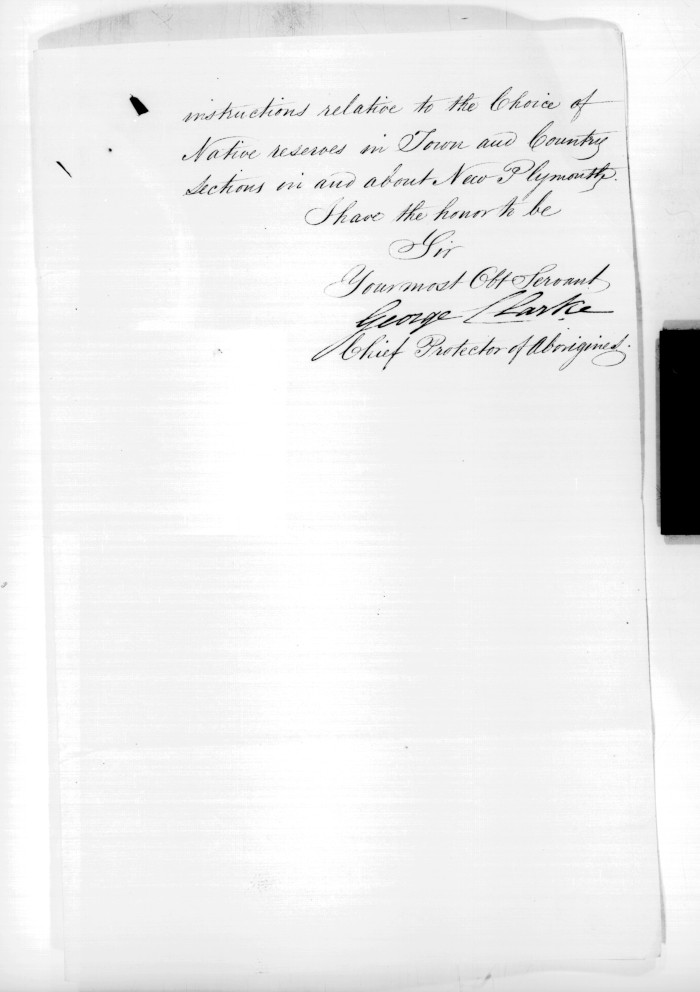 instructions relative to the Choice of
Native reserves in Town and Country
Sections in and about New Plymouth.
I have the honor to be
Sir
Your most Obt Servant
George Clarke
Chief Protector of Aborigines.